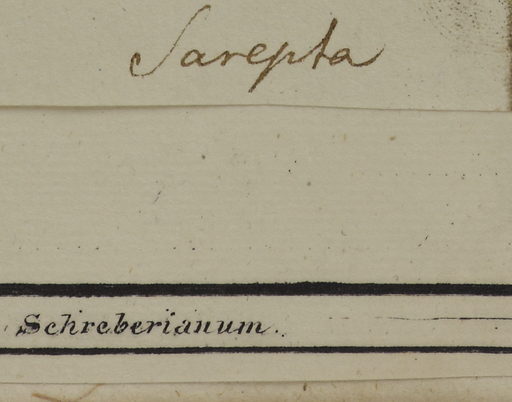 Sarepta
Schreberianum.